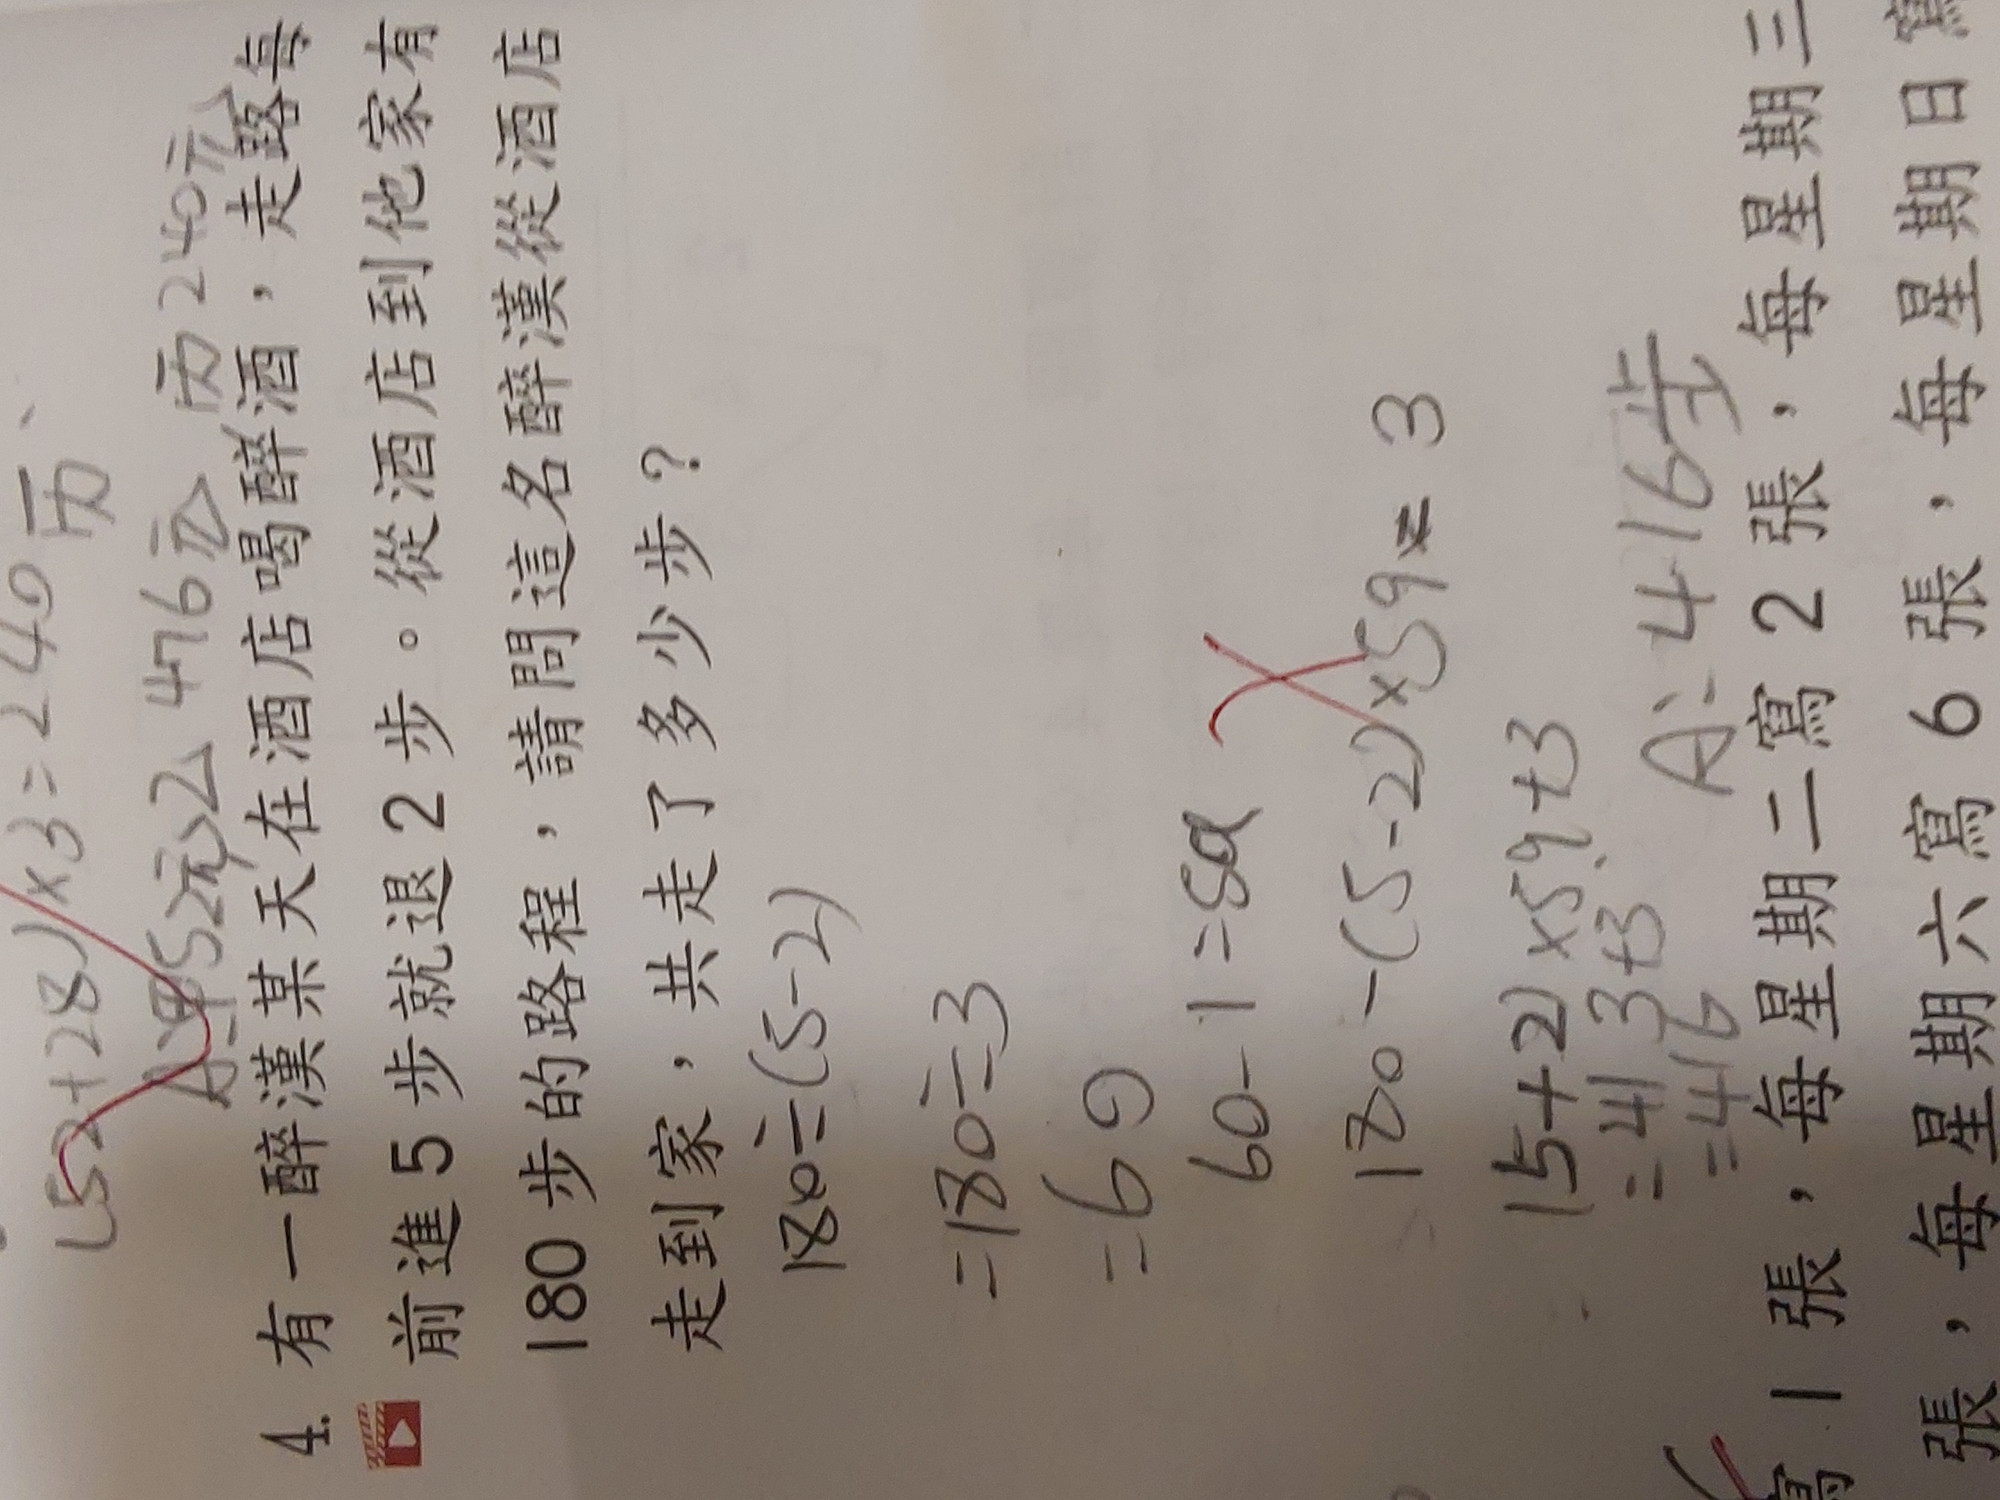 (52+28)×3=240 元
A:甲52元,乙476元,丙240元
4. 有一醉漢某天在酒店喝醉酒,走路每
前進 5 步就退 2 步。從酒店到他家有
180 步的路程,請問這名醉漢從酒店
走到家,共走了多少步?
180÷(5-2)
=180÷3
=60
60-1=59
180-(5-2)×59=3
(5+2)×59+3
=413+3
=416
A:416步
寫 1 張,每星期二寫 2 張,每星期三
張,每星期六寫 6 張,每星期日寫